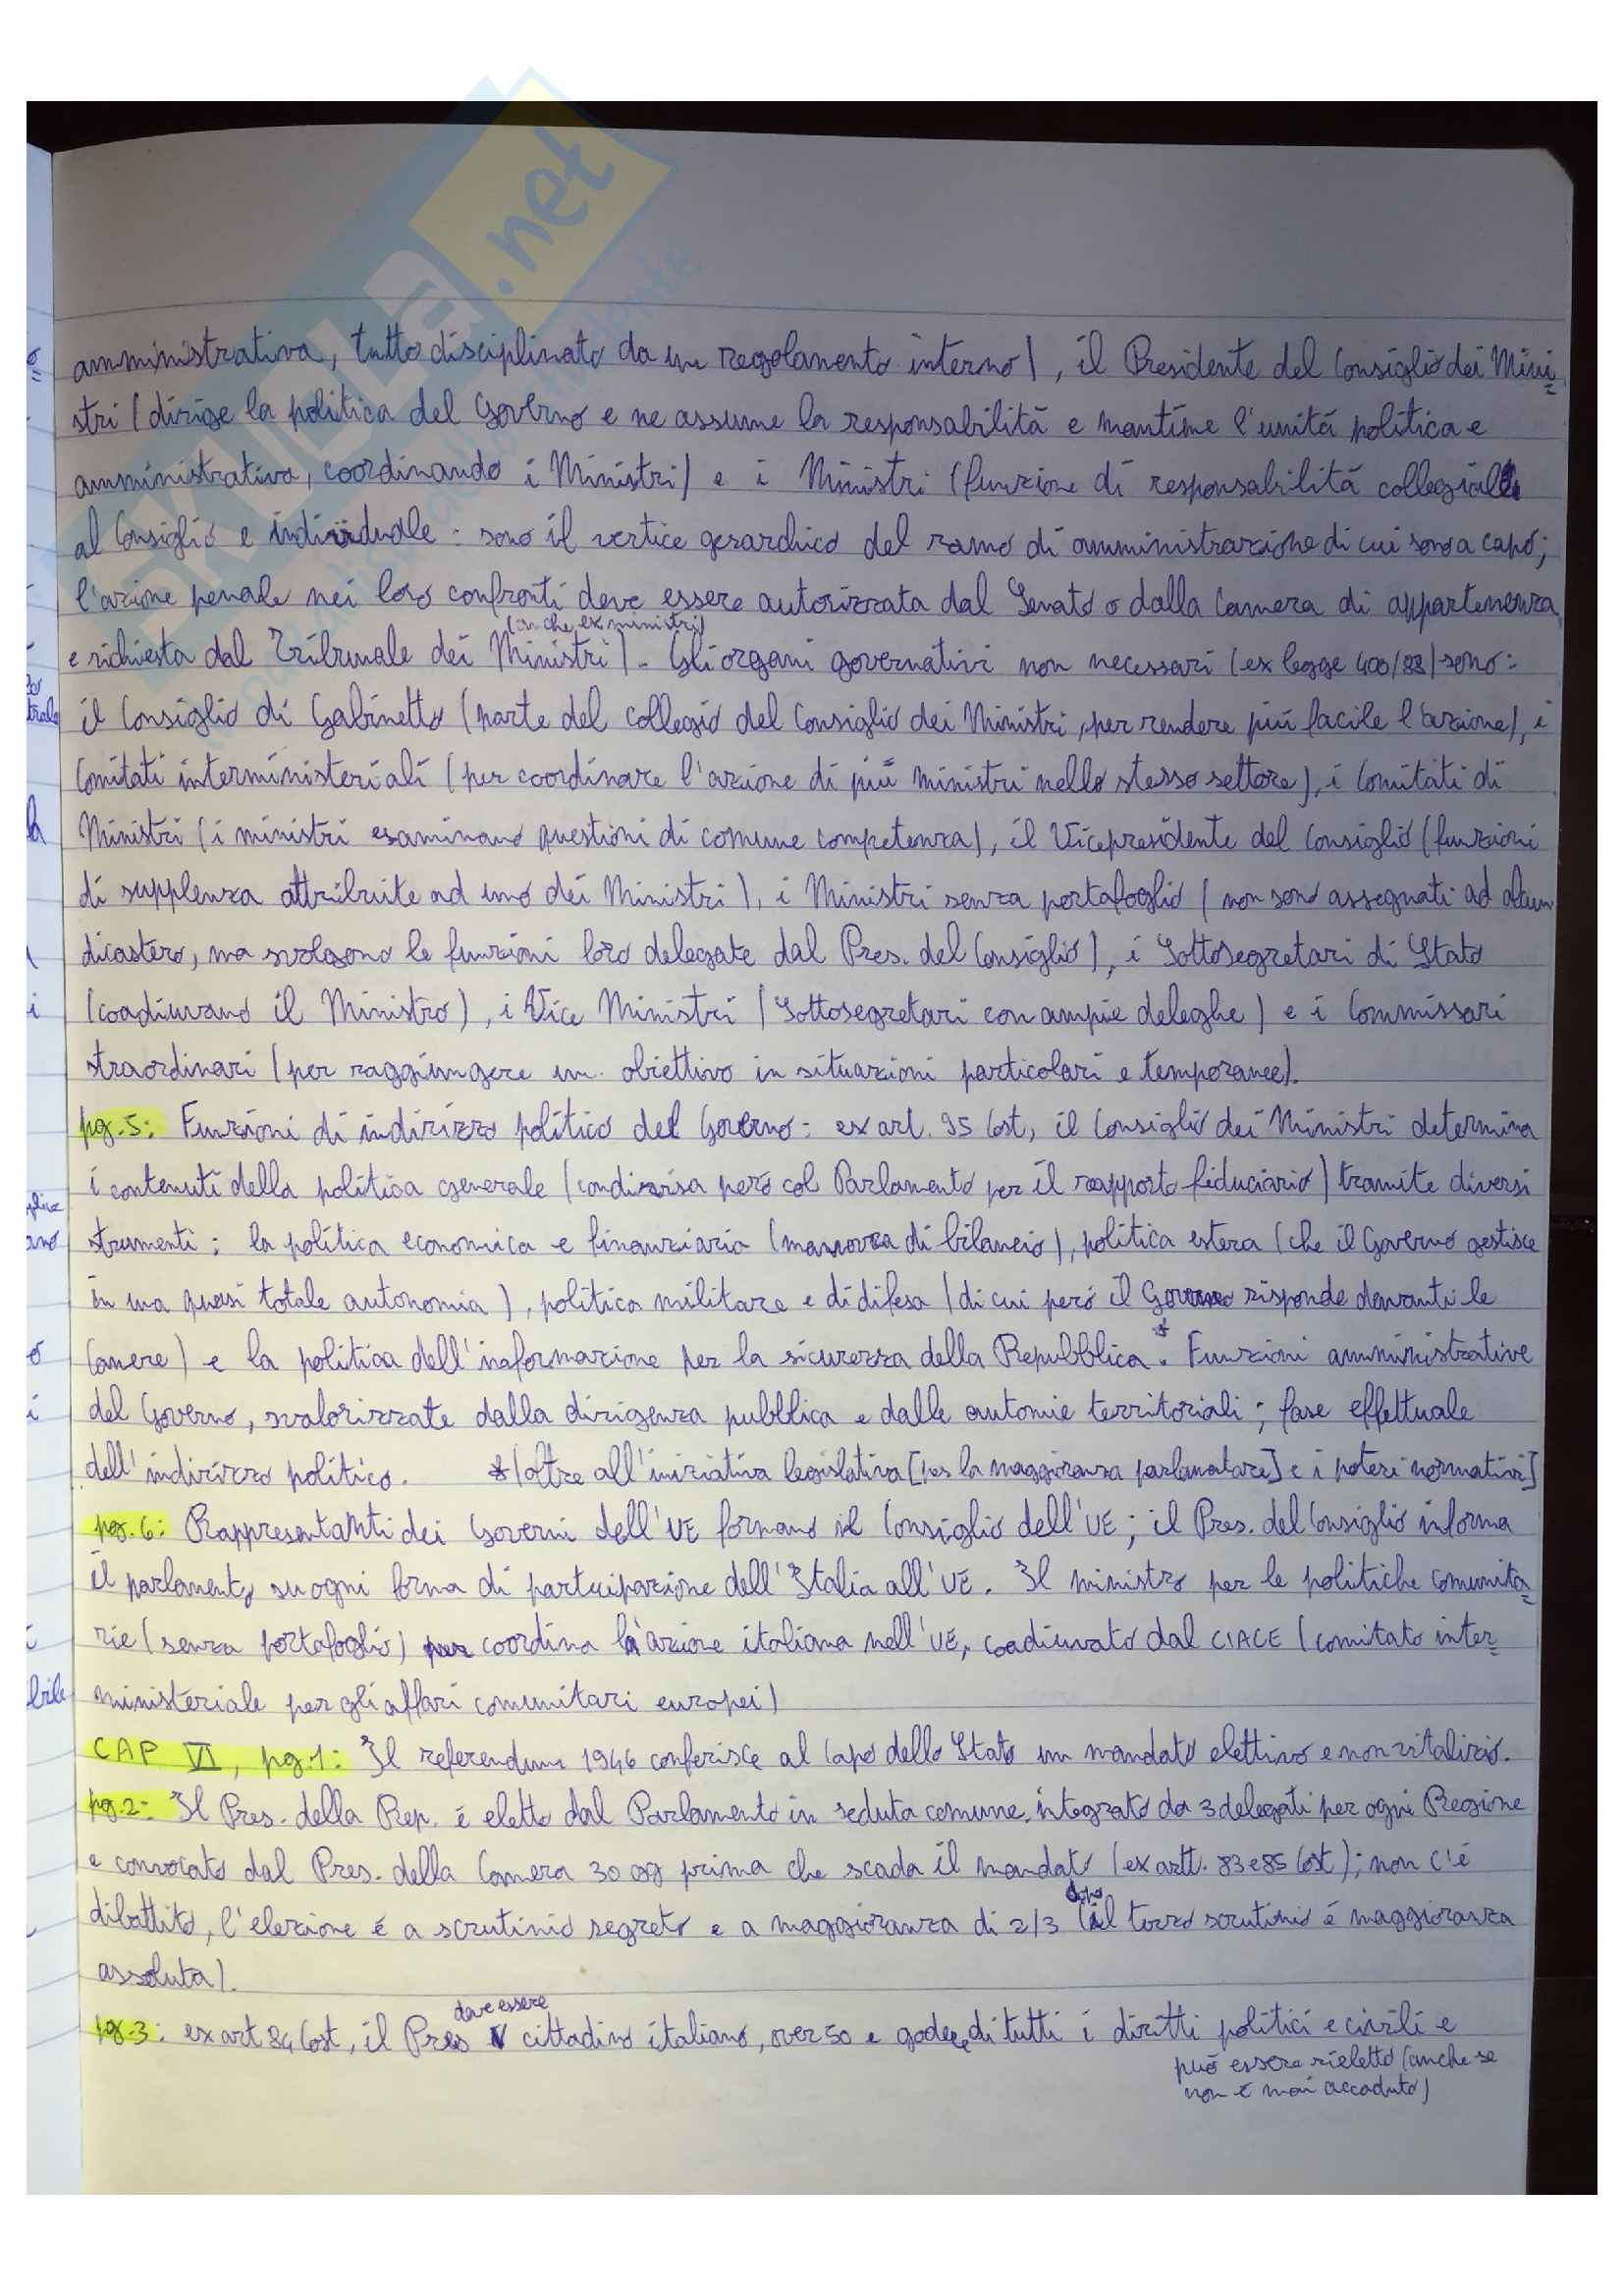 amministrativa, tutto disciplinato da un regolamento interno), il Presidente del Consiglio dei Mini=
stri (dirige la politica del Governo e ne assume la responsabilità e mantiene l'unità politica e
amministrativa, coordinando i Ministri) e i Ministri (funzione di responsabilità collegiale
al Consiglio e individuale: sono il vertice gerarchico del ramo di amministrazione di cui sono a capo;
l'azione penale nei loro confronti deve essere autorizzata dal Senato o dalla Camera di appartenenza
(anche ex ministri)
e richiesta dal Tribunale dei Ministri). Gli organi governativi non necessari (ex legge 400/88) sono:
il Consiglio di Gabinetto (parte del collegio del Consiglio dei Ministri, per rendere più facile l'azione), i
Comitati interministeriali (per coordinare l'azione di più ministri nello stesso settore), i Comitati di
Ministri (i ministri esaminano questioni di comune competenza), il Vicepresidente del Consiglio (funzioni
di supplenza attribuite ad uno dei Ministri), i Ministri senza portafoglio (non sono assegnati ad alcun
dicastero, ma svolgono le funzioni loro delegate dal Pres. del Consiglio), i Sottosegretari di Stato
(coadiuvano il Ministro), i Vice Ministri (Sottosegretari con ampie deleghe) e i Commissari
straordinari (per raggiungere un obiettivo in situazioni particolari e temporanee).
pg.5: Funzioni di indirizzo politico del Governo: ex art. 95 Cost, il Consiglio dei Ministri determina
i contenuti della politica generale (condivisa però col Parlamento per il rapporto fiduciario) tramite diversi
strumenti: la politica economica e finanziaria (manovra di bilancio), politica estera (che il Governo gestisce
in una quasi totale autonomia), politica militare e di difesa (di cui però il Governo risponde davanti le
Camere) e la politica dell'informazione per la sicurezza della Repubblica*. Funzioni amministrative
del Governo, svalorizzate dalla dirigenza pubblica e dalle autonomie territoriali; fase effettuale
dell'indirizzo politico. *(oltre all'iniziativa legislativa [per la maggioranza parlamentare] e i poteri normativi]
pg.6: Rappresentanti dei Governi dell'UE formano il Consiglio dell'UE; il Pres. del Consiglio informa
il parlamento su ogni forma di partecipazione dell'Italia all'UE. Il ministro per le politiche comunita=
rie (senza portafoglio) coordina l'azione italiana nell'UE, coadiuvato dal CIACE (comitato inter=
ministeriale per gli affari comunitari europei)
CAP VI, pg.1: Il referendum 1946 conferisce al Capo dello Stato un mandato elettivo e non vitalizio.
pg.2: Il Pres. della Rep. é eletto dal Parlamento in seduta comune, integrato da 3 delegati per ogni Regione
e convocato dal Pres. della Camera 30 gg prima che scada il mandato (ex artt. 83 e 85 Cost); non c'é
dibattito, l'elezione é a scrutinio segreto e a maggioranza di 2/3 (dopo il terzo scrutinio é maggioranza
assoluta).
pg.3: ex art 84 Cost, il Pres deve essere cittadino italiano, over 50 e godere di tutti i diritti politici e civili e
può essere rieletto (anche se
non é mai accaduto)
SKUOLA.net